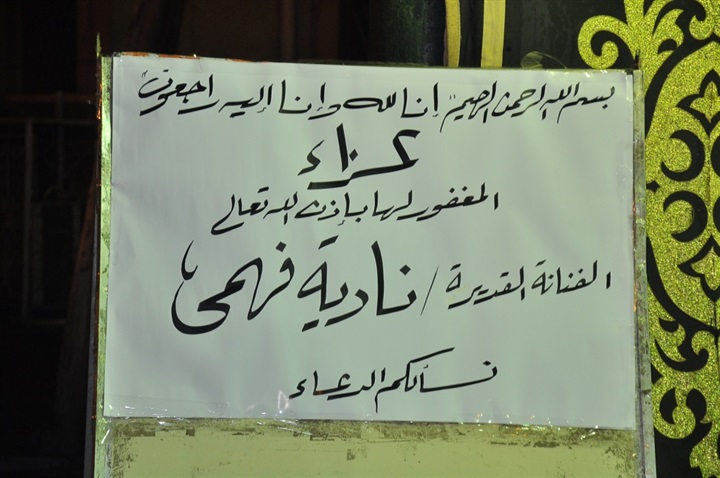 بسم الله الرحمن الرحيم "إنا لله وإنا إليه راجعون"
عزاء
المغفور لها بإذن الله تعالى
الفنانة القديرة / نادية فهمى
نسألكم الدعاء